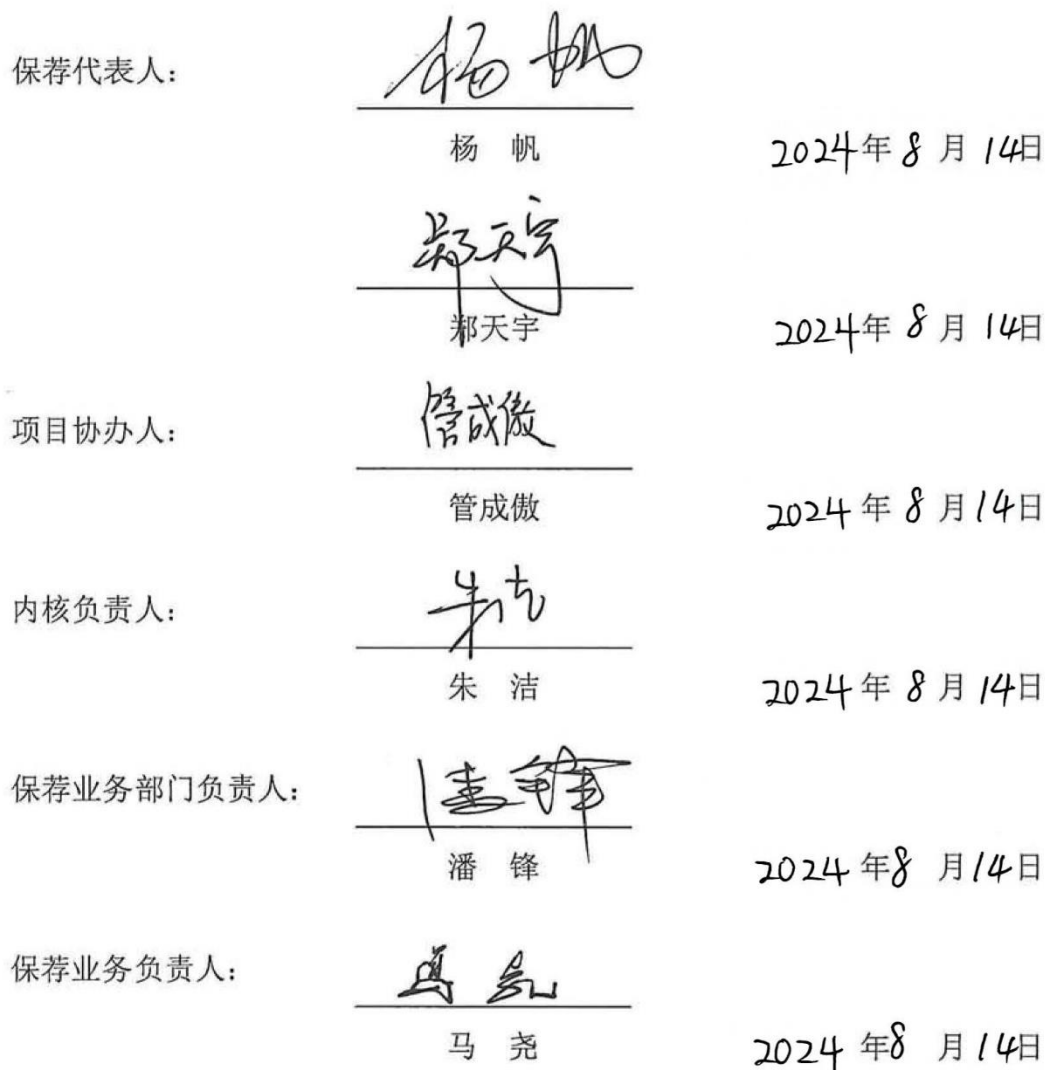 保荐代表人：
杨帆
杨 帆 2024年8月14日
郑天宇
郑天宇 2024年8月14日
项目协办人：
管成傲
管成傲 2024年8月14日
内核负责人：
朱洁
朱 洁 2024年8月14日
保荐业务部门负责人：
潘锋
潘 锋 2024年8月14日
保荐业务负责人：
马尧
马 尧 2024年8月14日